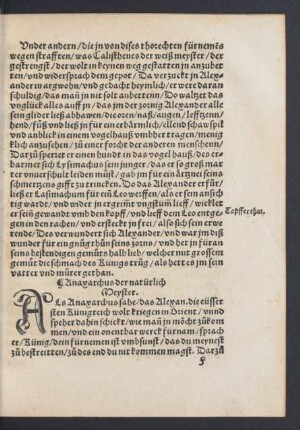 Vnder andern / die jn von dises thorechten fürnemens
wegen strafften / was Calisthenes der weiß meyster / der
gestrengst / der wolt in keynen weg gestatten jn anzubet
ten / vnd widersprach dem gepot / Da verzuckt jn Alex-
ander in argwohn / vnd gedacht heymlich / er were daran
schuldig / das man jn nit solt anbetten / Do waltzet das
vnglück alles auff jn / das jm der zornig Alexander alle
sein glider ließ abhawen / die oren / naß / augen / lefftzenn
hend / füß vnd ließ jn für ein erbärmlich / ellend schawspil
vnd anblick in einem vogelhauß vmbher tragen / menig
klich anzusehen / zů einer forcht der anderen menschenn /
Darzů spertet er einen hundt in das vogel hauß / des er-
barmet sich Lysimachus sein junger / das er so groß mar
ter vnuerschult leiden můst / gab jm für ein ärtznei seins
schmertzens gifft zů trincken. Do das Alexander erfür /
ließ er Lysimachum für ein Leo werffen / als er sein ansich
tig wardt / vnd wider in ergrimt vngstüm lieff / wicklet
er sein gewandt vmb den kopff / vnd lieff dem Leo entge-
gen in den rachen / vnd ersteckt jn frei / also sich sein erwe
rende. Des verwundert sich Alexander / vnd war jm diß
wunder für ein gnůg thůn seins zorns / vnd het jn für an
seins bestendigen gemüts halb lieb / welcher mit grossem
gemüt die schmach des Künigs trůg / als hett es jm sein
vatter vnd můter gethan.
Tapffer that.
¶ Anaxarchus der natürlich
Meyster.
ALs Anaxarchus sahe / das Alexan. die eüsser
sten Künigreich wolt kriegen in Orient / vnnd
spehet dahin schickt / wie man jn möcht zůkom
men / vnd ein onentbar werck fürnam / sprach
er / Künig / dein fürnemen ist vmbsunst / das du meynest
zů bestreitten / zů des end du nit kommen magst. Darzů